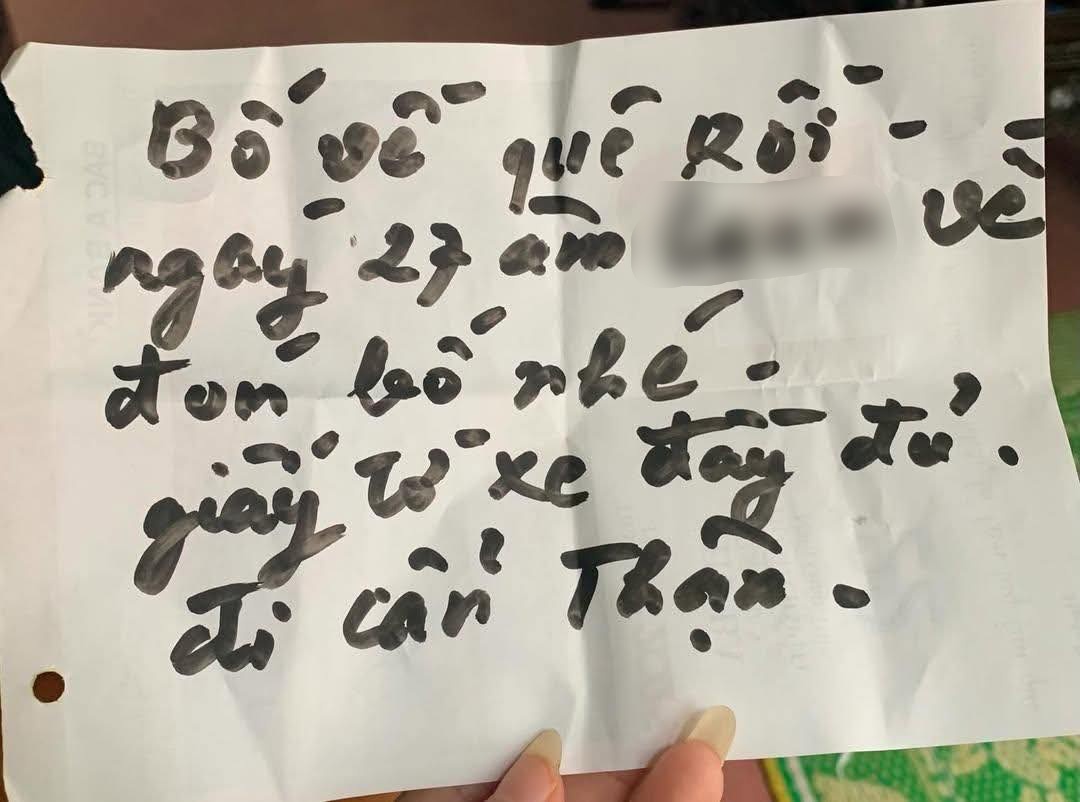 Bố về quê Rồi -
ngày 27 âm về
đón bố nhé -
giấy tờ xe đầy đủ.
đi cẩn Thận -